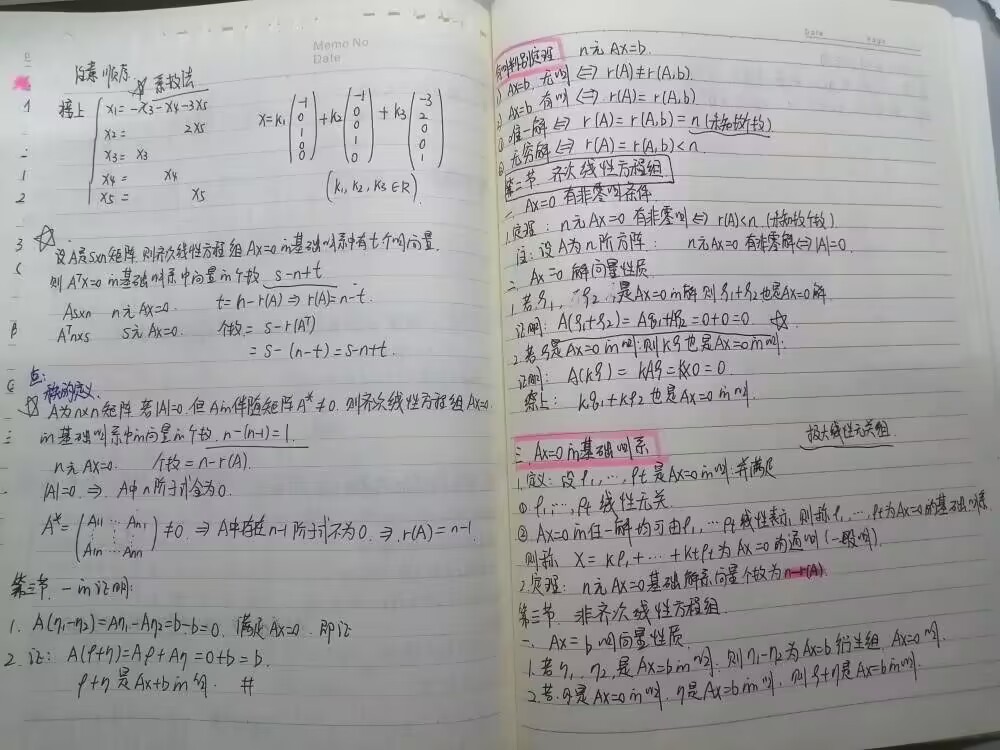 Memo No
Date
注意顺序 ☆系数法
接上 x1=-x3-x4-3x5
x2= 2x5
x3=x3
x4= x4
x5= x5
x=k1(-1 0 1 0 0)+k2(-1 0 0 1 0)+k3(-3 2 0 0 1)
(k1,k2,k3∈R)
☆设A是s×n矩阵,则齐次线性方程组Ax=0的基础解系中有t个解向量.
则AᵀX=0的基础解系中向量的个数 s-n+t.
As×n n元Ax=0. t=n-r(A)⇒r(A)=n-t.
Aᵀn×s s元Ax=0. 个数=s-r(Aᵀ)
=s-(n-t)=s-n+t.
点:
秩的定义
☆A为n×n矩阵 若|A|=0.但A的伴随矩阵A*≠0.则齐次线性方程组Ax=0.
的基础解系中的向量的个数 n-(n-1)=1.
n元Ax=0. 个数=n-r(A).
|A|=0 ⇒ A中n阶子式全为0.
A*=(A11 ⋯ An1 ⋮ ⋮ A1n ⋯ Ann)≠0 ⇒ A中存在n-1阶子式不为0 ⇒ r(A)=n-1.
第三节.一的证明:
1. A(η1-η2)=Aη1-Aη2=b-b=0. 满足Ax=0 即证
2.证: A(ρ+η)=Aρ+Aη=0+b=b.
ρ+η是Ax+b的解. #
Date Page
有解判别定理 n元Ax=b.
1) Ax=b.无解⇔r(A)≠r(A,b).
2) Ax=b 有解⇔r(A)=r(A,b)
① 唯一解⇔r(A)=r(A,b)=n(未知数个数)
② 无穷解⇔r(A)=r(A,b)<n.
第二节 齐次线性方程组
一 Ax=0 有非零解条件
1.定理: n元Ax=0 有非零解⇔r(A)<n.(未知数个数)
注:设A为n阶方阵: n元Ax=0 有非零解⇔|A|=0.
二 Ax=0 解向量性质
1.若ρ1, ρ2,是Ax=0的解 则ρ1+ρ2也是Ax=0解
证明:A(ρ1+ρ2)=Aρ1+Aρ2=0+0=0. ☆
2.若ρ是Ax=0的解:则kρ也是Ax=0的解.
证明: A(kρ)=kAρ=k×0=0
综上: kρ1+kρ2也是Ax=0的解.
极大线性无关组
三.Ax=0的基础解系
1.定义:设ρ1,⋯,ρt是Ax=0的解.并满足
① ρ1,⋯,ρt线性无关
② Ax=0的任一解均可由ρ1,⋯ρt线性表示,则称ρ1,⋯,ρt为Ax=0的基础解系
则称 X=kρ1+⋯+ktρt为Ax=0的通解(一般解).
2.定理: n元Ax=0基础解系向量个数为n-r(A).
第三节. 非齐次线性方程组.
一、Ax=b的解向量性质.
1.若η1,η2,是Ax=b的解.则η1-η2为Ax=b衍生组 Ax=0解.
2.若ρ是Ax=0的解.η是Ax=b的解,则ρ+η是Ax=b的解.